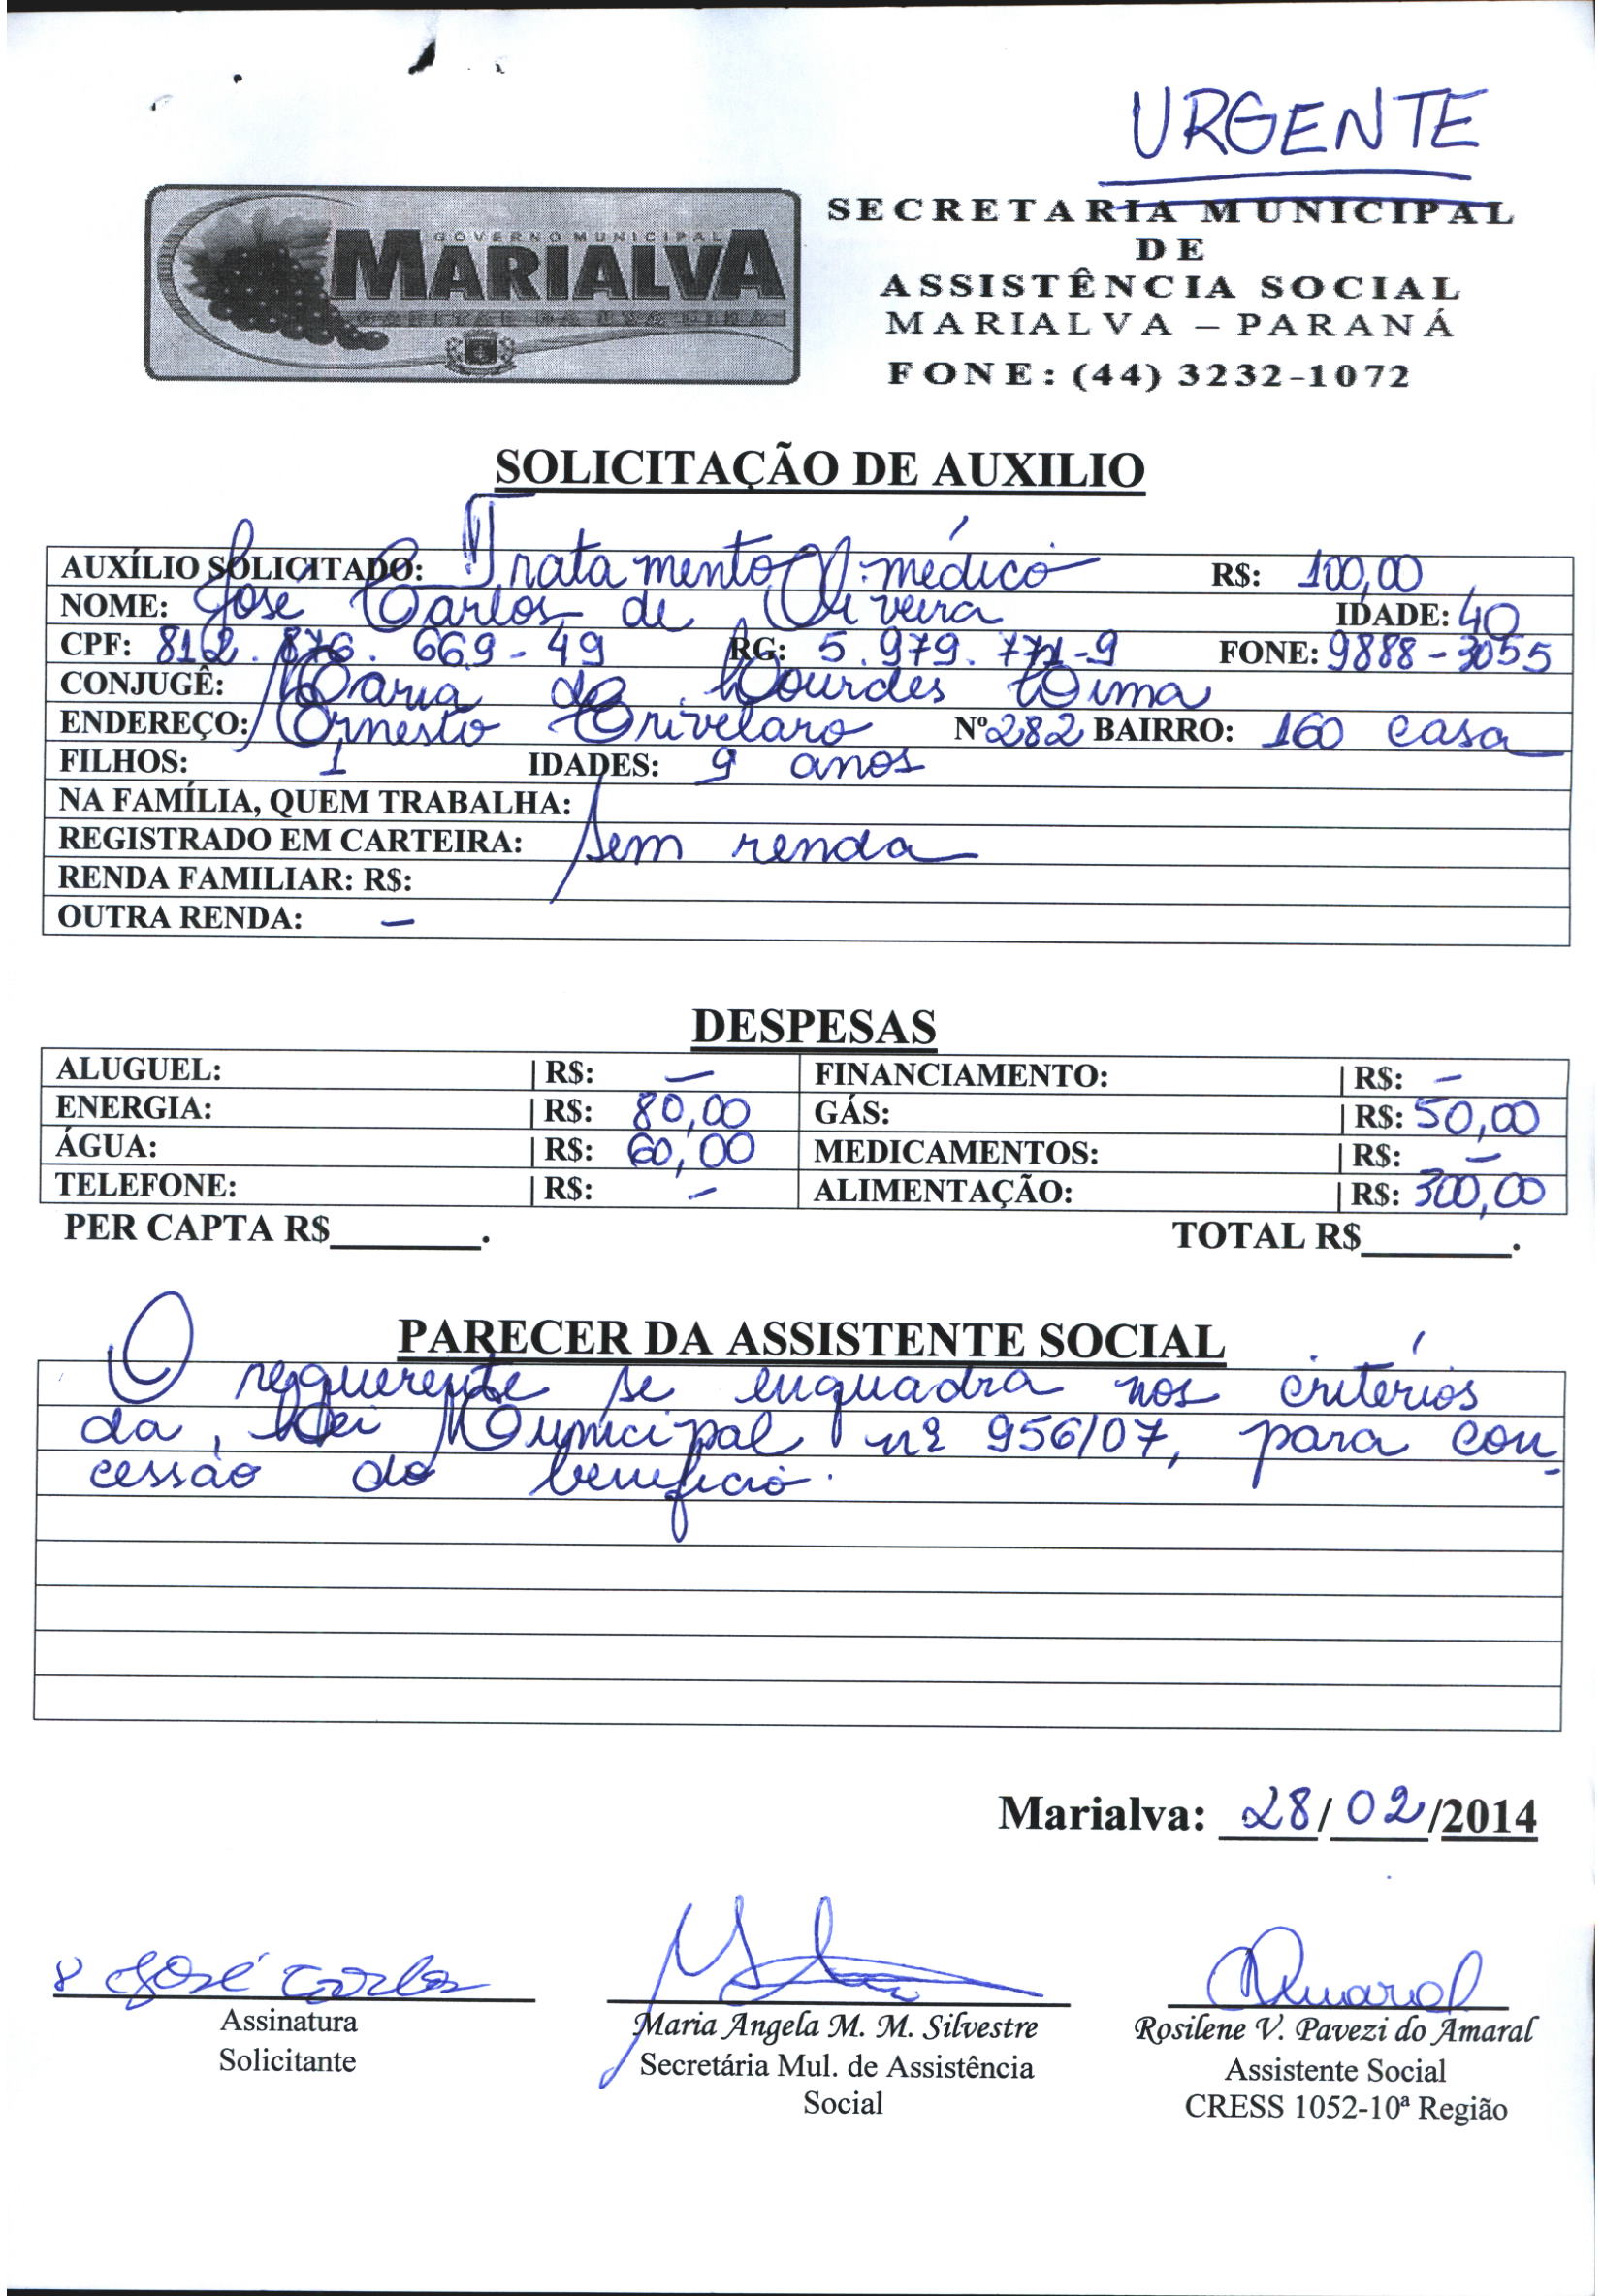 URGENTE
GOVERNO MUNICIPAL
MARIALVA
CAPITAL DA UVA FINA
SECRETARIA MUNICIPAL
DE
ASSISTÊNCIA SOCIAL
MARIALVA – PARANÁ
FONE: (44) 3232-1072
SOLICITAÇÃO DE AUXILIO
AUXÍLIO SOLICITADO: Tratamento médico R$: 100,00
NOME: José Carlos de Oliveira IDADE: 40
CPF: 812.876.669-49 RG: 5.979.771-9 FONE: 9888-3055
CONJUGÊ: Maria de Lourdes Lima
ENDEREÇO: Ernesto Crivelaro Nº 282 BAIRRO: 160 casa
FILHOS: 1 IDADES: 9 anos
NA FAMÍLIA, QUEM TRABALHA:
REGISTRADO EM CARTEIRA: Sem renda
RENDA FAMILIAR: R$:
OUTRA RENDA: –
DESPESAS
ALUGUEL: | R$: – FINANCIAMENTO: | R$: –
ENERGIA: | R$: 80,00 GÁS: | R$: 50,00
ÁGUA: | R$: 60,00 MEDICAMENTOS: | R$: –
TELEFONE: | R$: – ALIMENTAÇÃO: | R$: 300,00
PER CAPTA R$_______. TOTAL R$_______.
PARECER DA ASSISTENTE SOCIAL
O requerente se enquadra nos critérios
da Lei Municipal nº 956/07, para con-
cessão do benefício.
Marialva: 28/02/2014
José Carlos
Assinatura
Solicitante
Maria Angela M. M. Silvestre
Secretária Mul. de Assistência
Social
Amaral
Rosilene V. Pavezi do Amaral
Assistente Social
CRESS 1052-10ª Região